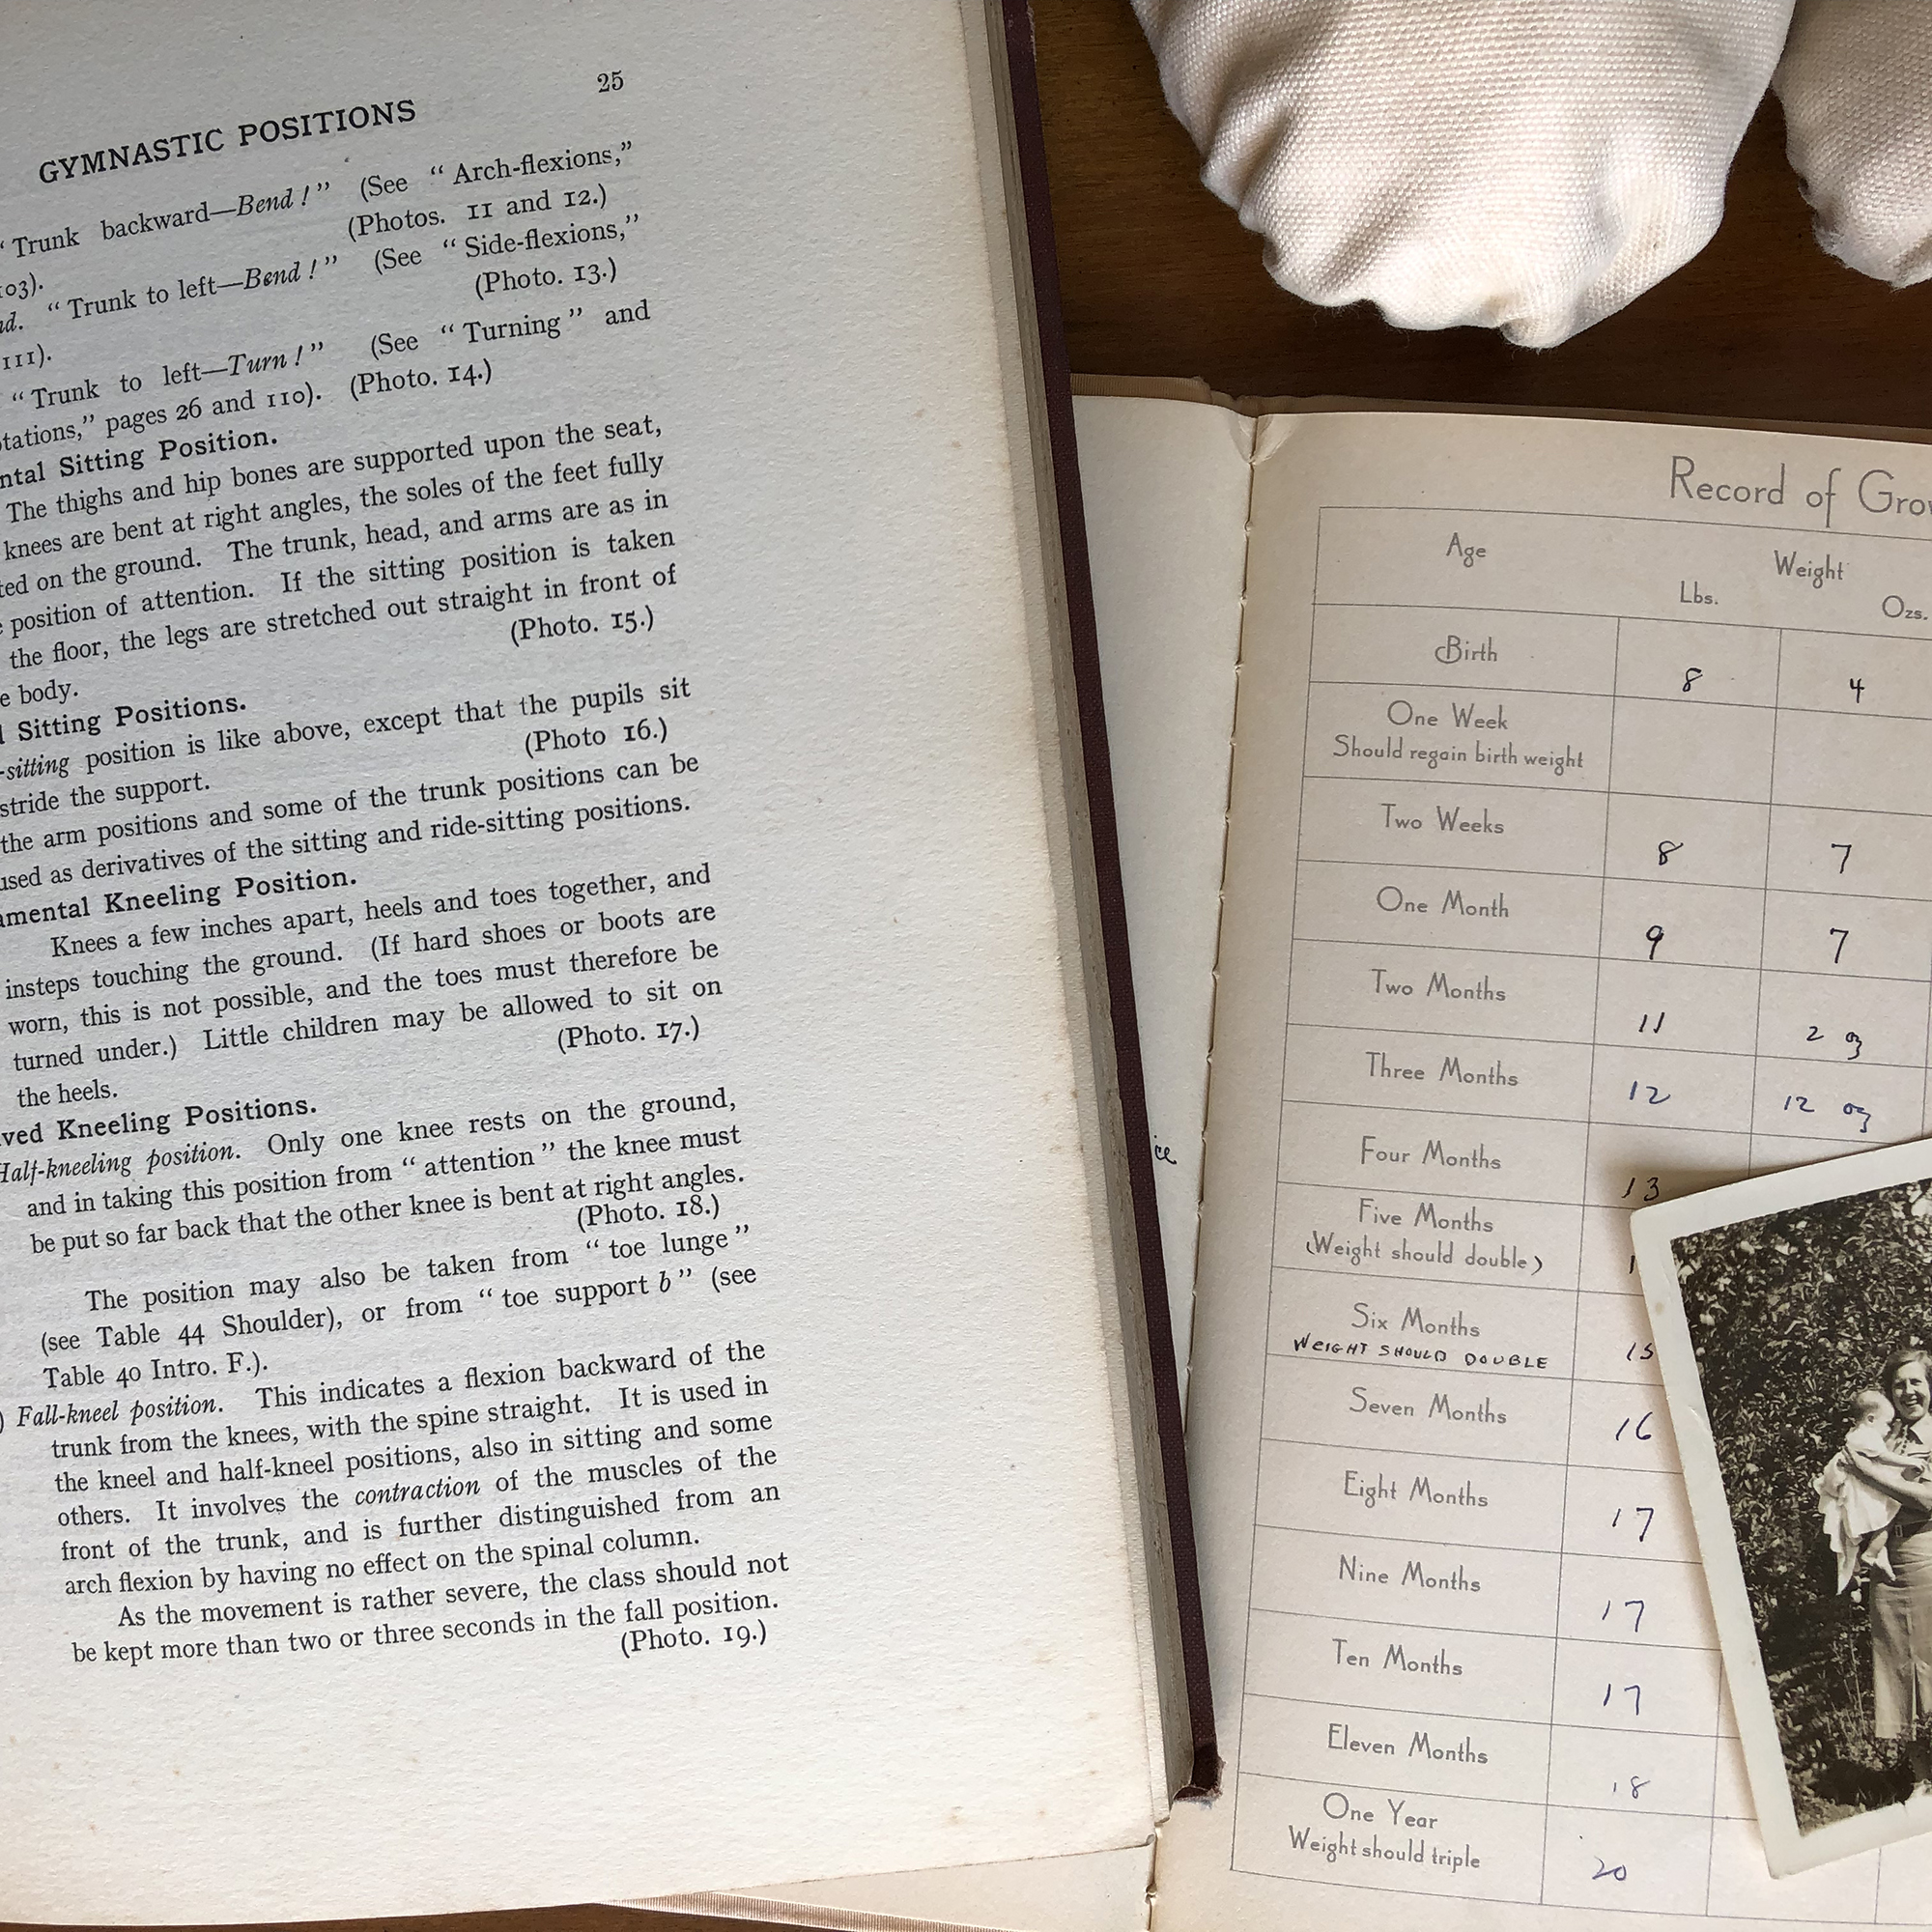 25
GYMNASTIC POSITIONS
“Trunk backward—Bend!” (See “Arch-flexions,”
103). (Photos. 11 and 12.)
“Trunk to left—Bend!” (See “Side-flexions,”
111). (Photo. 13.)
“Trunk to left—Turn!” (See “Turning” and
pages 26 and 110). (Photo. 14.)
Sitting Position.
The thighs and hip bones are supported upon the seat,
knees are bent at right angles, the soles of the feet fully
on the ground. The trunk, head, and arms are as in
position of attention. If the sitting position is taken
the floor, the legs are stretched out straight in front of
body. (Photo. 15.)
Sitting Positions.
-sitting position is like above, except that the pupils sit
stride the support. (Photo 16.)
the arm positions and some of the trunk positions can be
used as derivatives of the sitting and ride-sitting positions.
Kneeling Position.
Knees a few inches apart, heels and toes together, and
insteps touching the ground. (If hard shoes or boots are
worn, this is not possible, and the toes must therefore be
turned under.) Little children may be allowed to sit on
the heels. (Photo. 17.)
Kneeling Positions.
Half-kneeling position. Only one knee rests on the ground,
and in taking this position from “attention” the knee must
be put so far back that the other knee is bent at right angles.
(Photo. 18.)
The position may also be taken from “toe lunge”
(see Table 44 Shoulder), or from “toe support b” (see
Table 40 Intro. F.).
) Fall-kneel position. This indicates a flexion backward of the
trunk from the knees, with the spine straight. It is used in
the kneel and half-kneel positions, also in sitting and some
others. It involves the contraction of the muscles of the
front of the trunk, and is further distinguished from an
arch flexion by having no effect on the spinal column.
As the movement is rather severe, the class should not
be kept more than two or three seconds in the fall position.
(Photo. 19.)
Record of
Age Weight
Lbs. Ozs.
Birth 8 4
One Week
Should regain birth weight
Two Weeks 8 7
One Month 9 7
Two Months 11 2 oz
Three Months 12 12 oz
Four Months 13
Five Months
(Weight should double)
Six Months 15
WEIGHT SHOULD DOUBLE
Seven Months 16
Eight Months 17
Nine Months 17
Ten Months 17
Eleven Months 18
One Year 20
Weight should triple